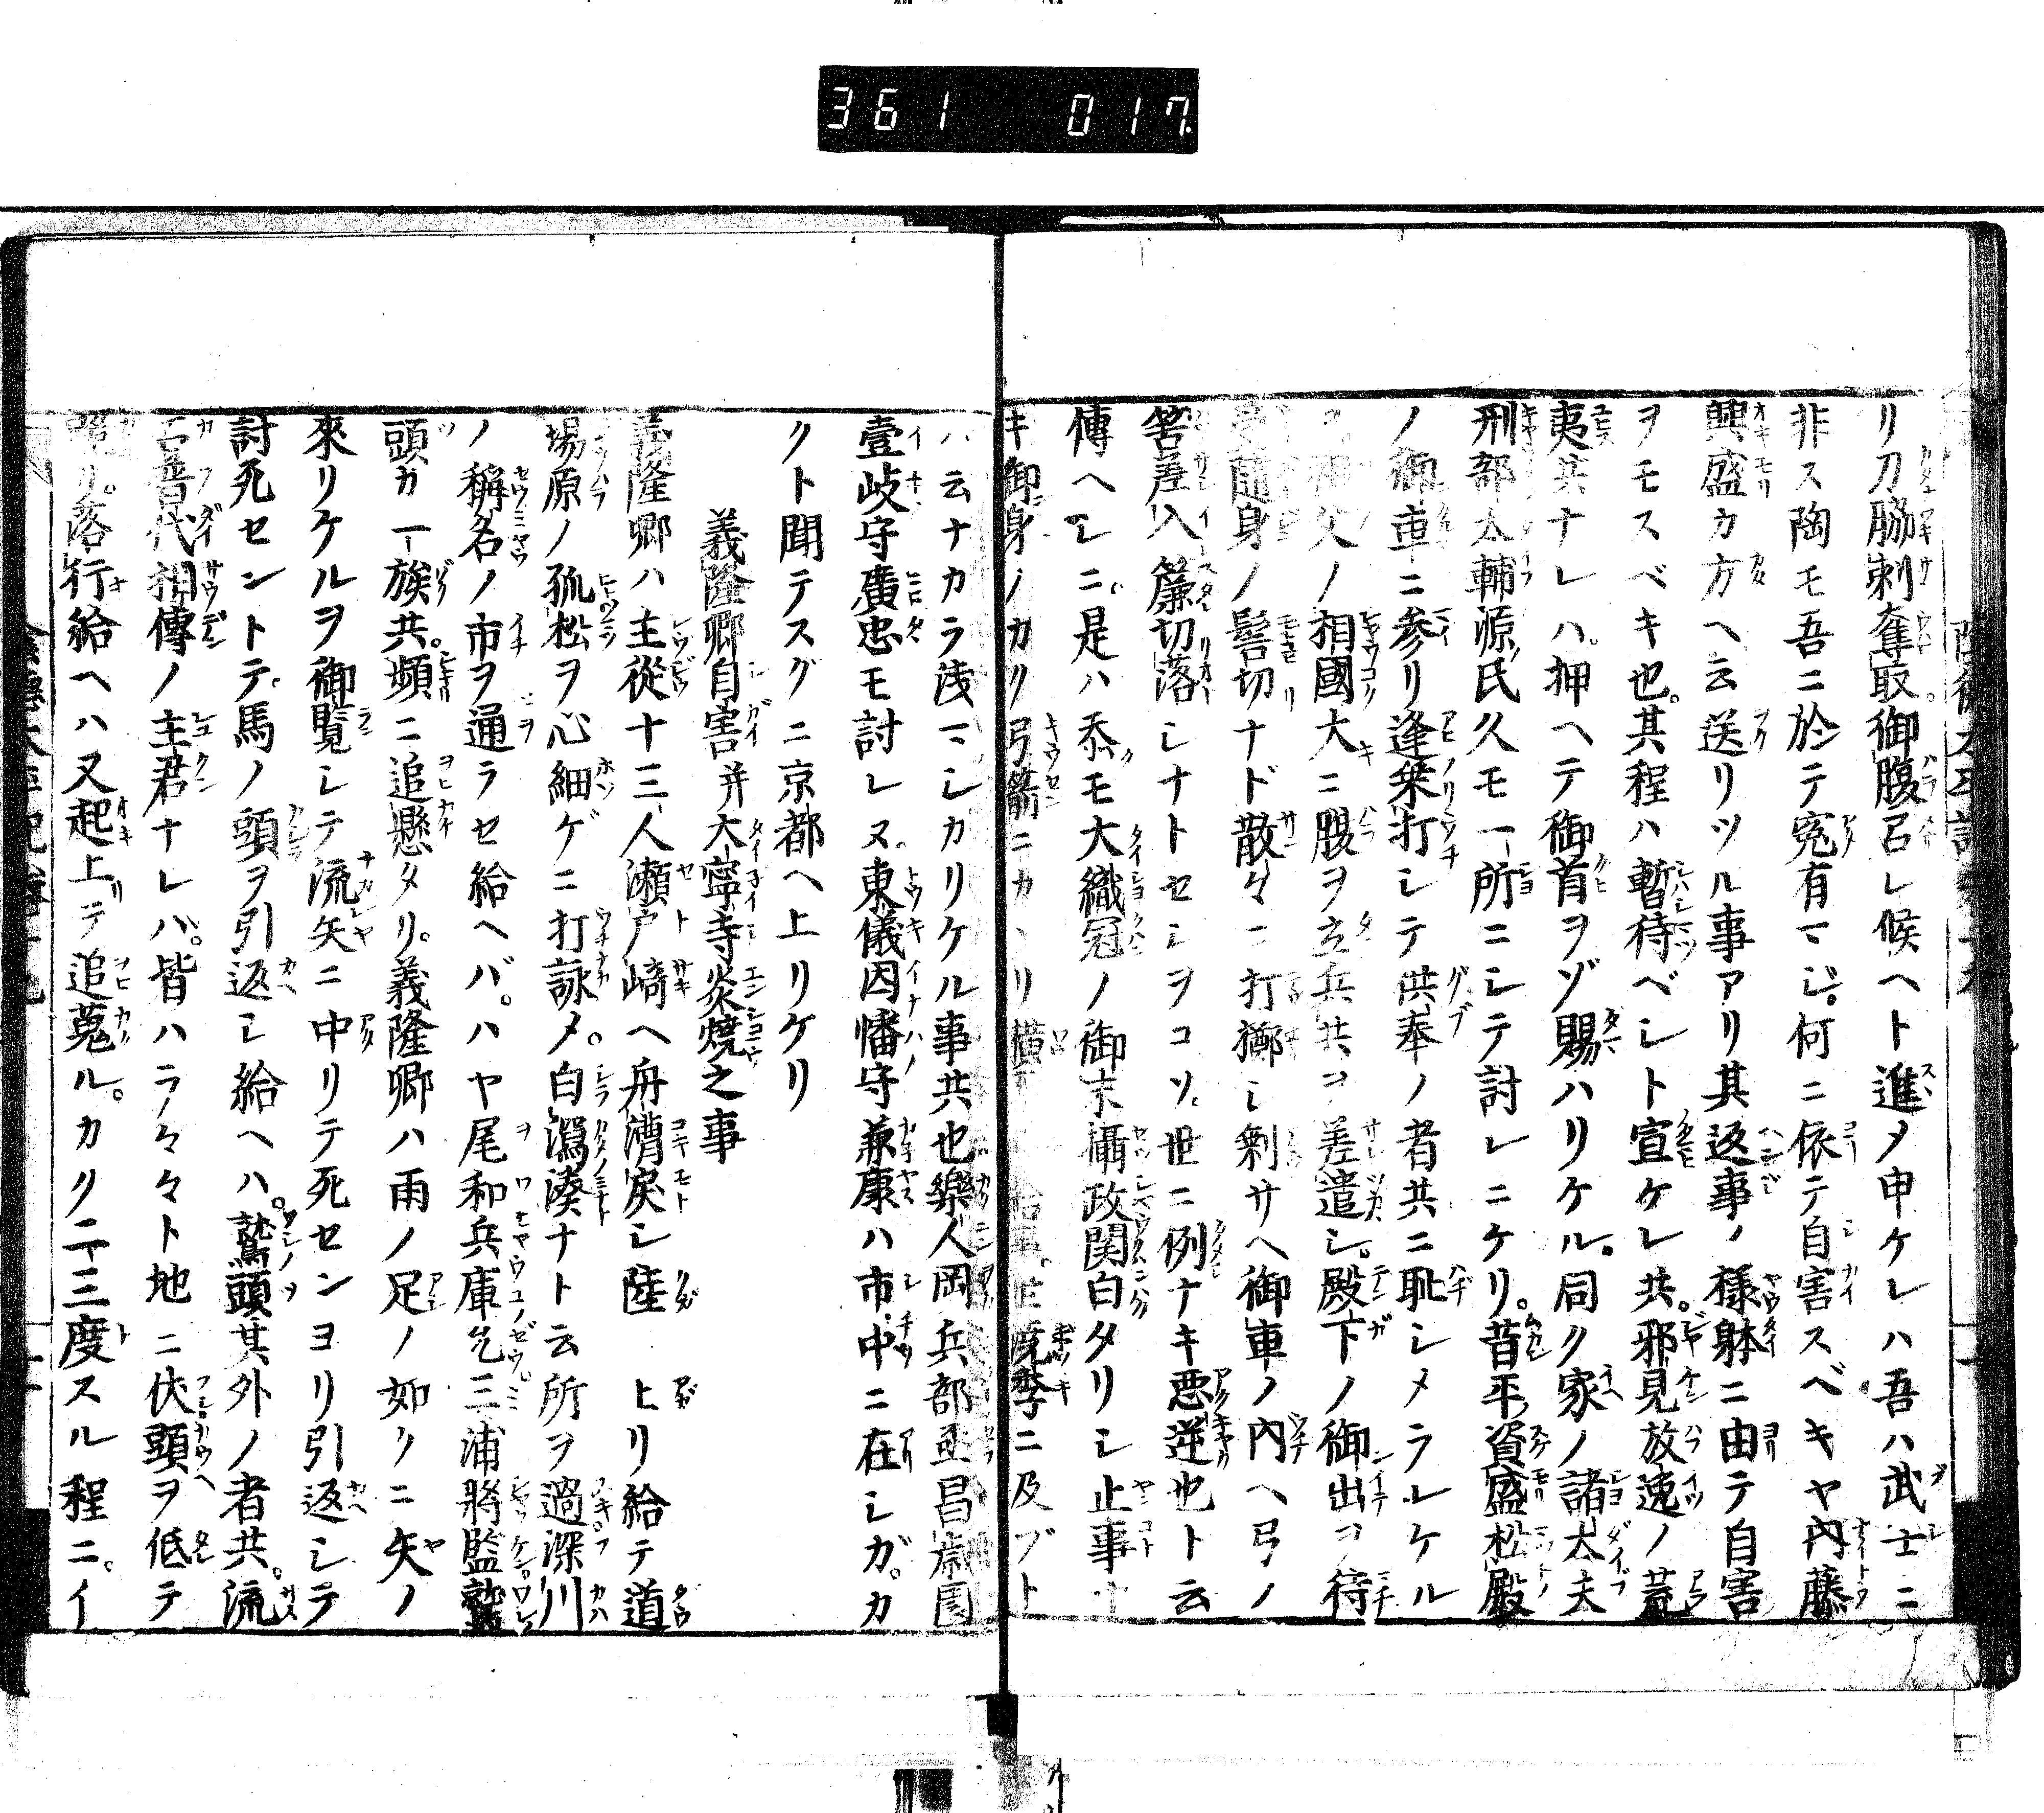 361 017
リ刀脇刺奪取御腹召レ候ヘト進メ申ケレハ吾ハ武士ニ
非ス陶モ吾ニ於テ寃有マジ。何ニ依テ自害スベキヤ内藤
興盛カ方ヘ云送リツル事アリ其返事ノ様躰ニ由テ自害
ヲモスベキ也。其程ハ暫待ベシト宣ケレ共。邪見放逸ノ荒
夷共ナレハ。押ヘテ御首ヲゾ賜ハリケル。同ク家ノ諸太夫
刑部太輔源氏久モ一所ニシテ討レニケリ。昔平資盛松殿
ノ御車ニ参リ逢乗打シテ供奉ノ者共ニ耻シメラルケル
ヲ祖父ノ相國大ニ腹ヲ立兵共ヲ差遣シ。殿下ノ御出ヲ待
随身ノ髻切ナド散々ニ打擲シ剰サヘ御車ノ内ヘ弓ノ
筈差入簾切落シナトセシヲコソ。世ニ例ナキ悪逆也ト云
傳ヘシニ。是ハ忝モ大織冠ノ御末攝政関白タリシ止事ナ
キ御身ノカク弓箭ニカヽリ横
世澆季ニ及ブト
ハ云ナカラ浅マシカリケル事共也樂人岡兵部丞昌歳園
壹岐守廣忠モ討レヌ。東儀因幡守兼康ハ市中ニ在シガ。カ
クト聞テスグニ京都ヘ上リケリ
義隆卿自害并大寧寺炎焼之事
義隆卿ハ主從十三人瀬戸﨑ヘ舟漕戻シ陸ヒ上リ給テ道
場原ノ孤松ヲ心細ゲニ打詠メ。白瀉湊ナト云所ヲ過深川
ノ稱名ノ市ヲ通ラセ給ヘバ。ハヤ尾和兵庫允三浦將監鷲
頭カ一族共。頻ニ追懸タリ。義隆卿ハ雨ノ足ノ如クニ矢ノ
來リケルヲ御覧シテ流矢ニ中リテ死センヨリ引返シテ
討死セントテ。馬ノ頭ヲ引返シ給ヘハ。鷲頭其外ノ者共。流
石普代相傳ノ主君ナレバ。皆ハラ々々ト地ニ伏頭ヲ低テ
リ。落行給ヘハ又起上テ追蒐ル。カク二三度スル程ニ。イ